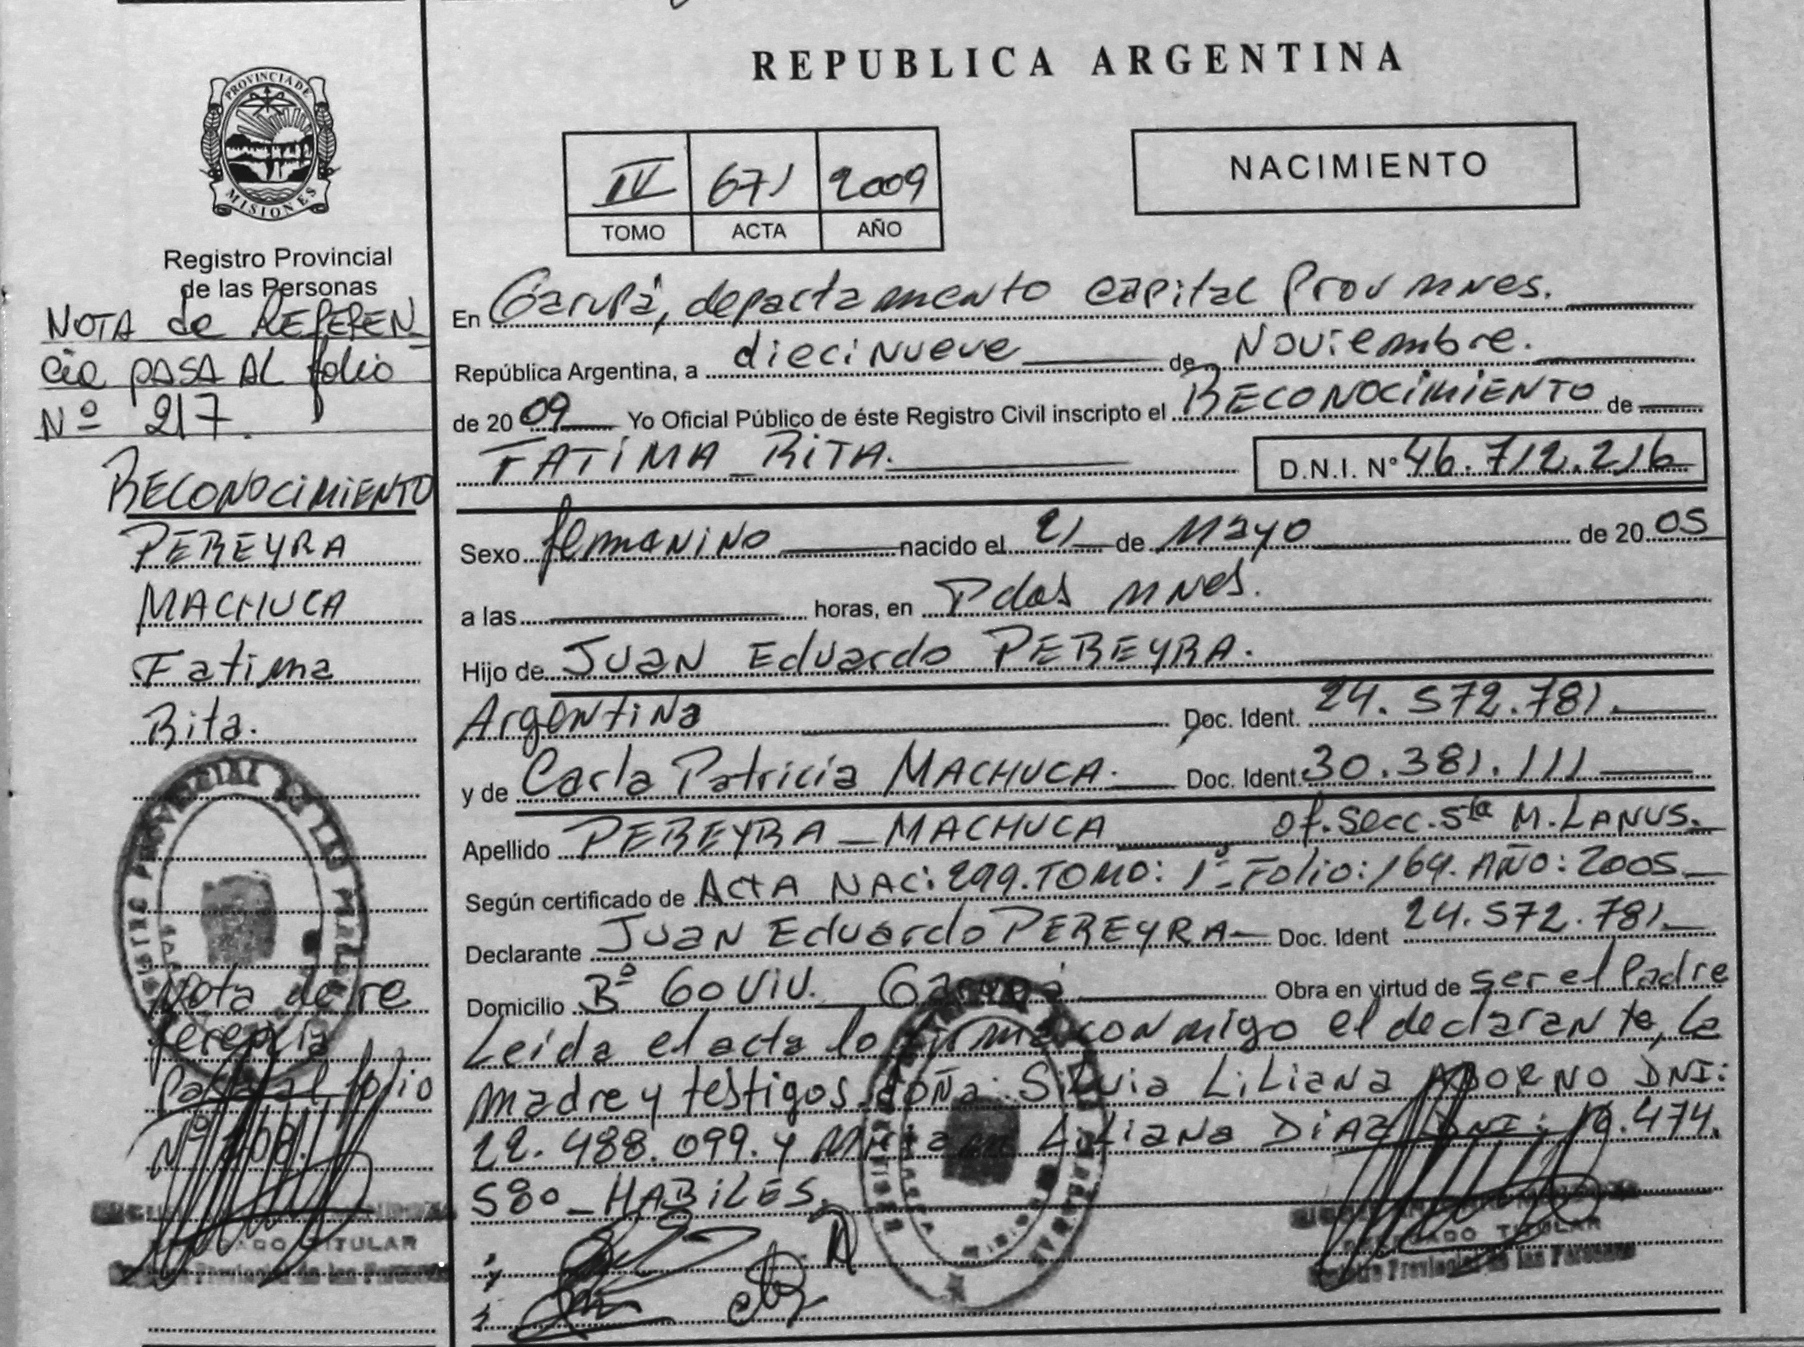 PROVINCIA DE
MISIONES
Registro Provincial
de las Personas
NOTA de REFEREN
cia PASA AL folio
Nº 217.
RECONOCIMIENTO
PEREYRA
MACHUCA
Fatima
Rita.
Nota de re
ferencia
Pasa al folio
Nº 208.
DELEGADO TITULAR
Registro Provincial de las Personas
REPUBLICA ARGENTINA
IV 671 2009
TOMO ACTA AÑO
NACIMIENTO
En Garupá, departamento capital Prov mnes.
República Argentina, a diecinueve de Noviembre.
de 2009 Yo Oficial Público de éste Registro Civil inscripto el RECONOCIMIENTO de
FATIMA RITA. D.N.I. Nº 46.712.216
Sexo femenino nacido el 21 de Mayo de 2005
a las horas, en Pdas mnes.
Hijo de Juan Eduardo PEREYRA.
Argentina Doc. Ident. 24.572.781.
y de Carla Patricia MACHUCA. Doc. Ident. 30.381.111
Apellido PEREYRA - MACHUCA of. secc. 5ta M. LANUS.
Según certificado de ACTA NAC: 299. TOMO: 1º Folio: 164. AÑO: 2005
Declarante Juan Eduardo PEREYRA Doc. Ident 24.572.781.
Domicilio Bº 60 VIV. Garupá Obra en virtud de ser el Padre
Leída el acta lo firma conmigo el declarante, la
madre y testigos doña: Silvia LiLiana ADORNO DNI:
22.488.099. y LiLiana DiAZ DNI: 474.
580 - HABILES.
DELEGADO TITULAR
Registro Provincial de las Personas